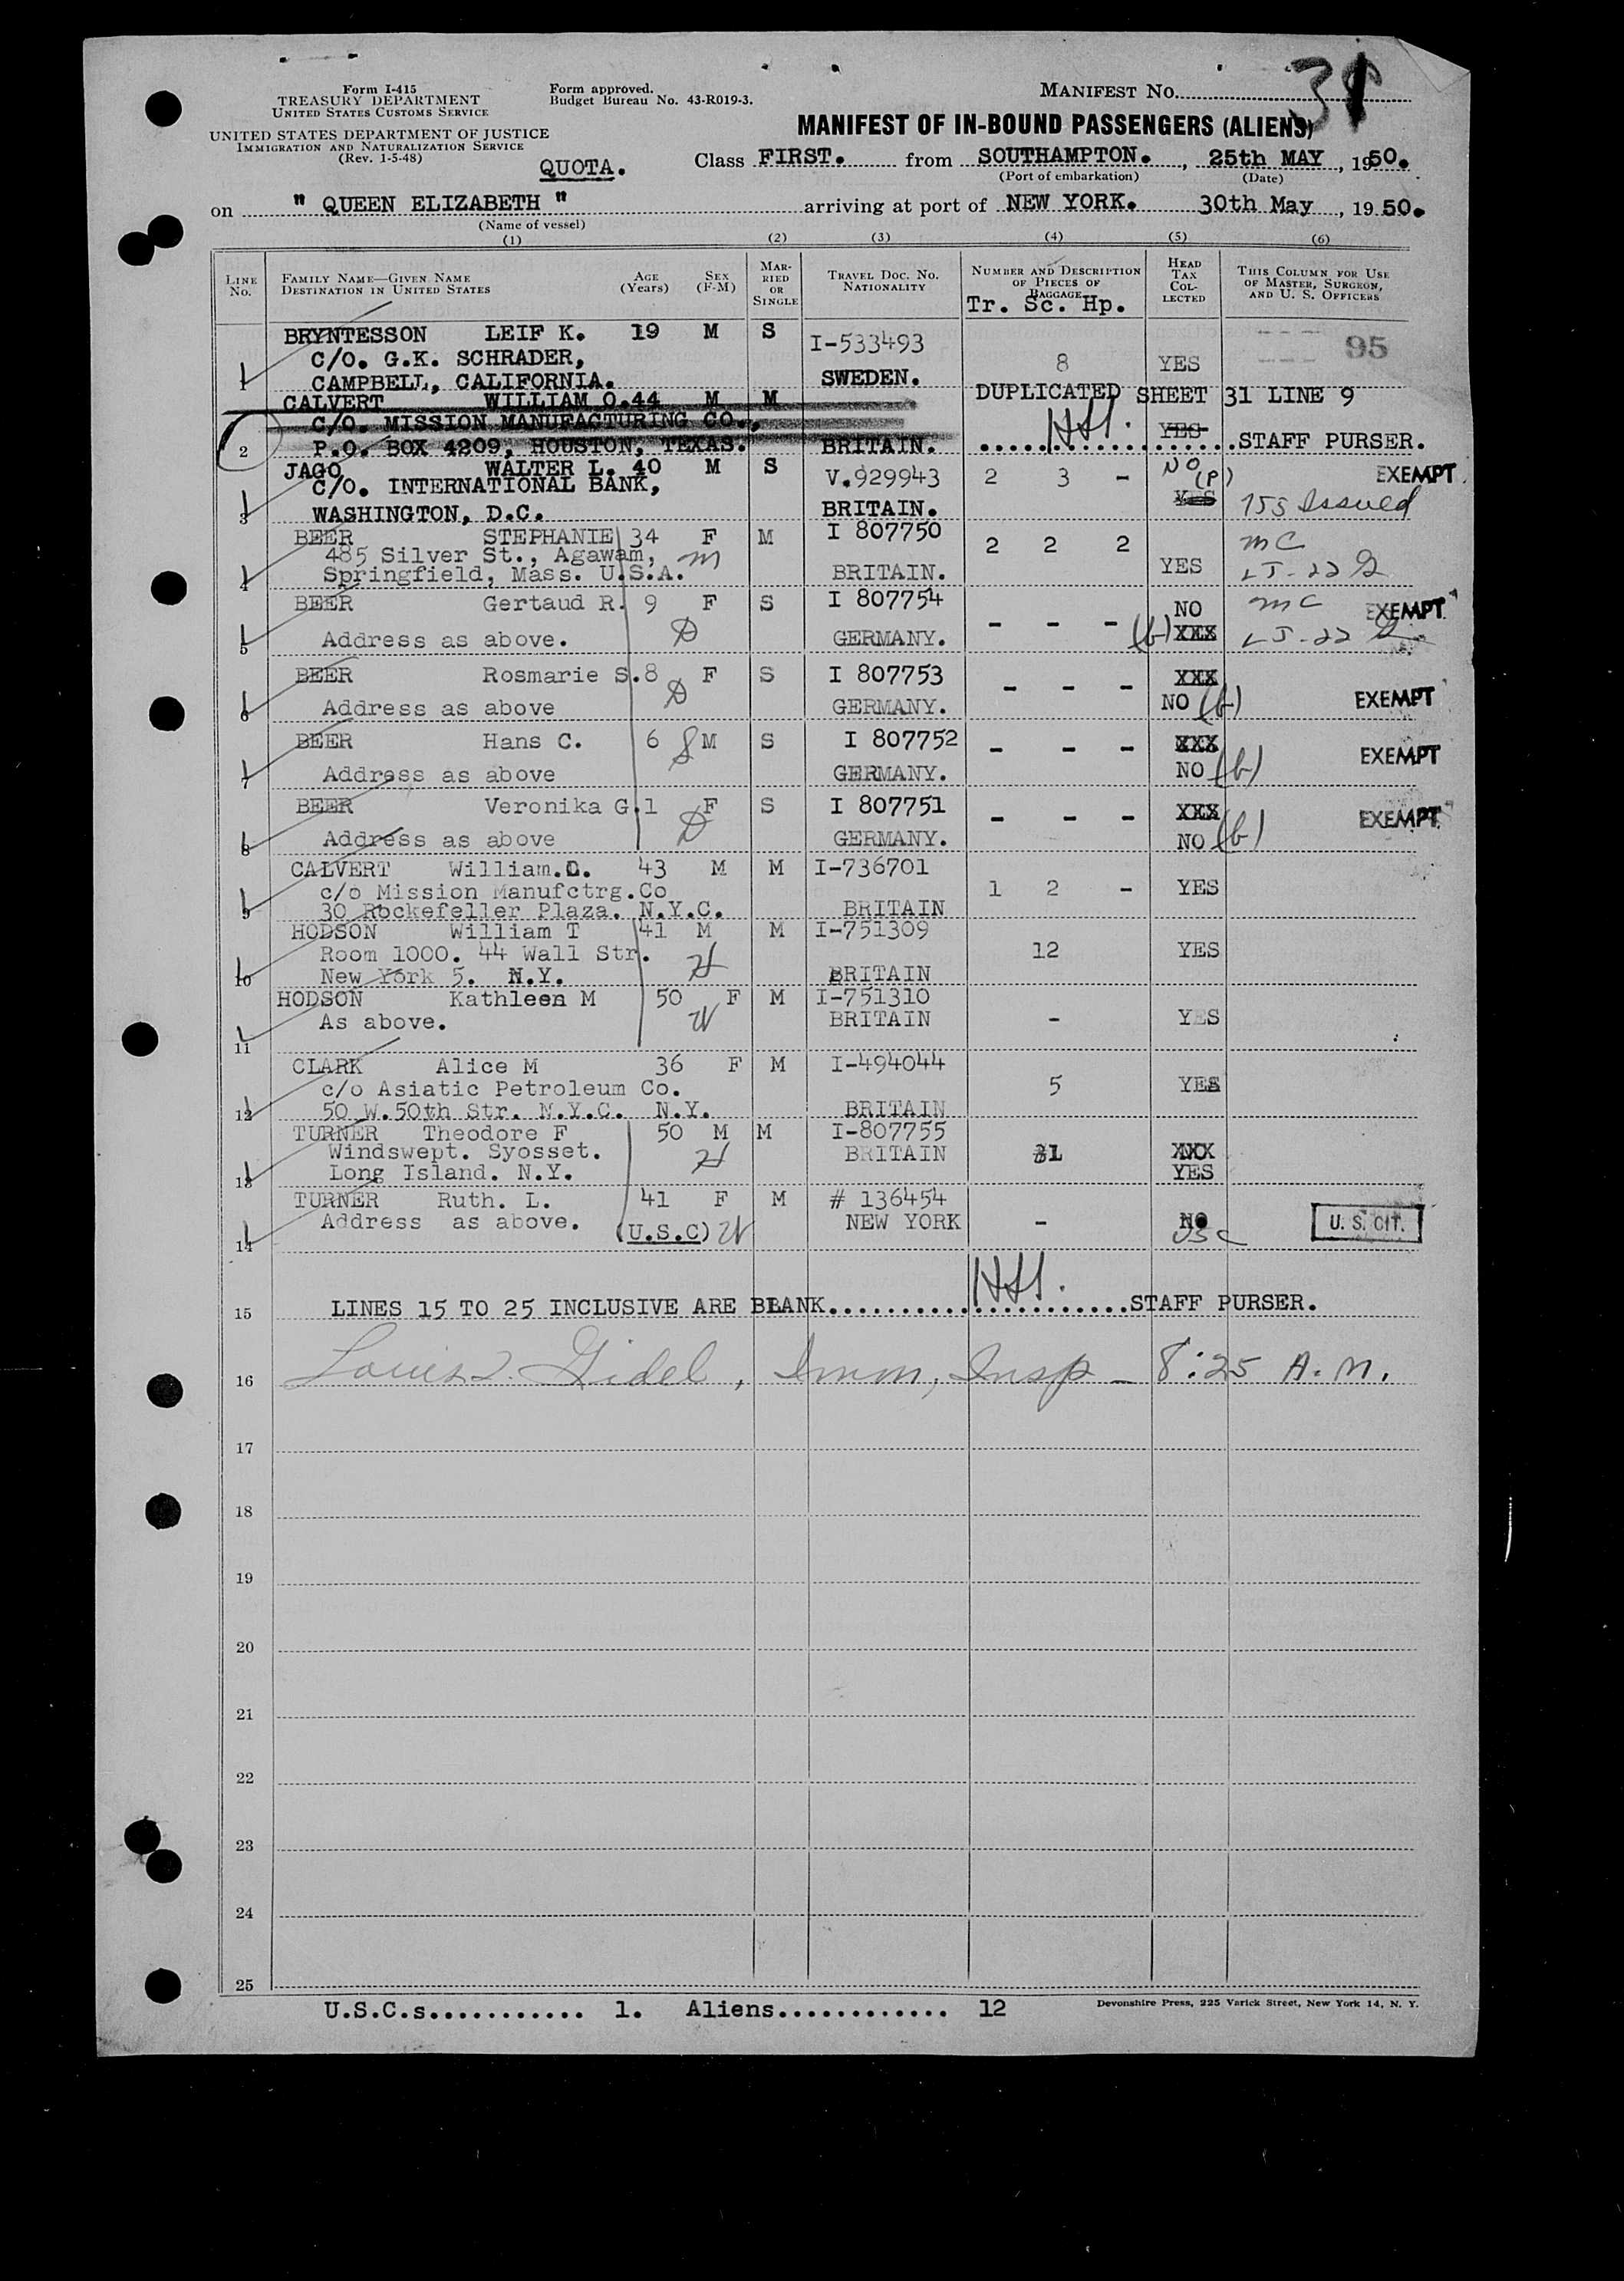 Form I-415
TREASURY DEPARTMENT
UNITED STATES CUSTOMS SERVICE
Form approved.
Budget Bureau No. 43-R019-3.
MANIFEST NO. 31
UNITED STATES DEPARTMENT OF JUSTICE
IMMIGRATION AND NATURALIZATION SERVICE
(Rev. 1-5-48)
MANIFEST OF IN-BOUND PASSENGERS (ALIENS)
QUOTA.
Class FIRST. from SOUTHAMPTON., 25th MAY, 1950.
(Port of embarkation) (Date)
on " QUEEN ELIZABETH " arriving at port of NEW YORK. 30th May, 19 50.
(Name of vessel)
(1) (2) (3) (4) (5) (6)
LINE No.
FAMILY NAME—GIVEN NAME
DESTINATION IN UNITED STATES
AGE (Years)
SEX (F-M)
MARRIED OR SINGLE
TRAVEL DOC. NO.
NATIONALITY
NUMBER AND DESCRIPTION OF PIECES OF BAGGAGE
Tr. Sc. Hp.
HEAD TAX COLLECTED
THIS COLUMN FOR USE OF MASTER, SURGEON, AND U. S. OFFICERS
95
BRYNTESSON LEIF K. 19 M S I-533493
C/O. G.K. SCHRADER, 8 YES
1 CAMPBELL, CALIFORNIA. SWEDEN.
CALVERT WILLIAM O. 44 M M DUPLICATED SHEET 31 LINE 9
C/O. MISSION MANUFACTURING CO., YES
2 P.O. BOX 4209, HOUSTON, TEXAS. BRITAIN. ..........STAFF PURSER.
JAGO WALTER L. 40 M S V.929943 2 3 - NO (P) EXEMPT
C/O. INTERNATIONAL BANK, YES 155 Issued
3 WASHINGTON, D.C. BRITAIN.
BEER STEPHANIE 34 F M I 807750 2 2 2 mc
485 Silver St., Agawam, m
4 Springfield, Mass. U.S.A. BRITAIN. YES
BEER Gertaud R. 9 F S I 807754 - - - NO mc EXEMPT
5 Address as above. GERMANY. (b) XXX
BEER Rosmarie S. 8 F S I 807753 - - - XXX
6 Address as above GERMANY. NO (b) EXEMPT
BEER Hans C. 6 M S I 807752 - - - XXX EXEMPT
7 Address as above GERMANY. NO (b)
BEER Veronika G. 1 F S I 807751 - - - XXX EXEMPT
8 Address as above GERMANY. NO (b)
CALVERT William.O. 43 M M I-736701
c/o Mission Manufctrg.Co 1 2 - YES
9 30 Rockefeller Plaza. N.Y.C. BRITAIN
HODSON William T 41 M M I-751309
Room 1000. 44 Wall Str. H 12 YES
10 New York 5. N.Y. BRITAIN
HODSON Kathleen M 50 F M I-751310
As above. W BRITAIN - YES
11
CLARK Alice M 36 F M I-494044
c/o Asiatic Petroleum Co. 5 YES
12 50 W.50th Str. N.Y.C. N.Y. BRITAIN
TURNER Theodore F 50 M M I-807755
Windswept. Syosset. H BRITAIN XXX
13 Long Island. N.Y. YES
TURNER Ruth. L. 41 F M # 136454
Address as above. (U.S.C) W NEW YORK - NO U. S. CIT.
14 USC
15 LINES 15 TO 25 INCLUSIVE ARE BLANK..........STAFF PURSER.
16 Louis Gidel, Imm, Insp - 8:25 A.M.
17
18
19
20
21
22
23
24
25
U.S.C.s............ 1. Aliens............. 12
Devonshire Press, 225 Varick Street, New York 14, N. Y.